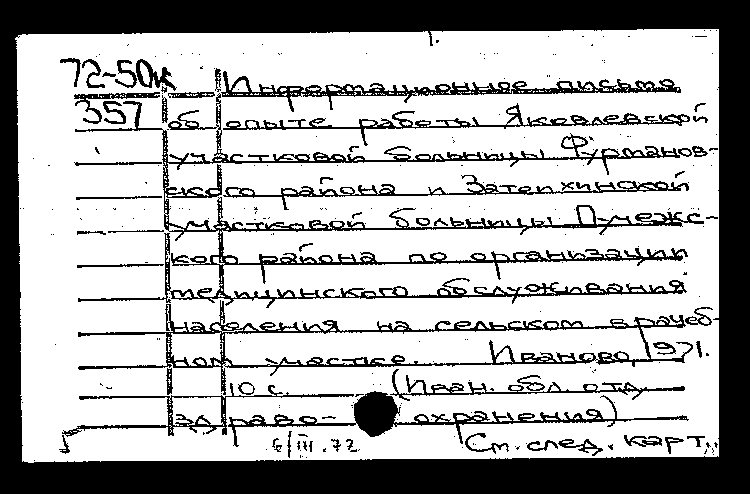 1.
72-50к Информационное письмо
357 об опыте работы Яковлевской
участковой больницы Фурманов-
ского района и Затеихинской
участковой больницы Пучежс-
кого района по организации
медицинского обслуживания
населения на сельском врачеб-
ном участке. Иваново, 1971.
10 с. (Иван. обл. отд.
здраво- охранения)
6/III.72 См. след. карт.